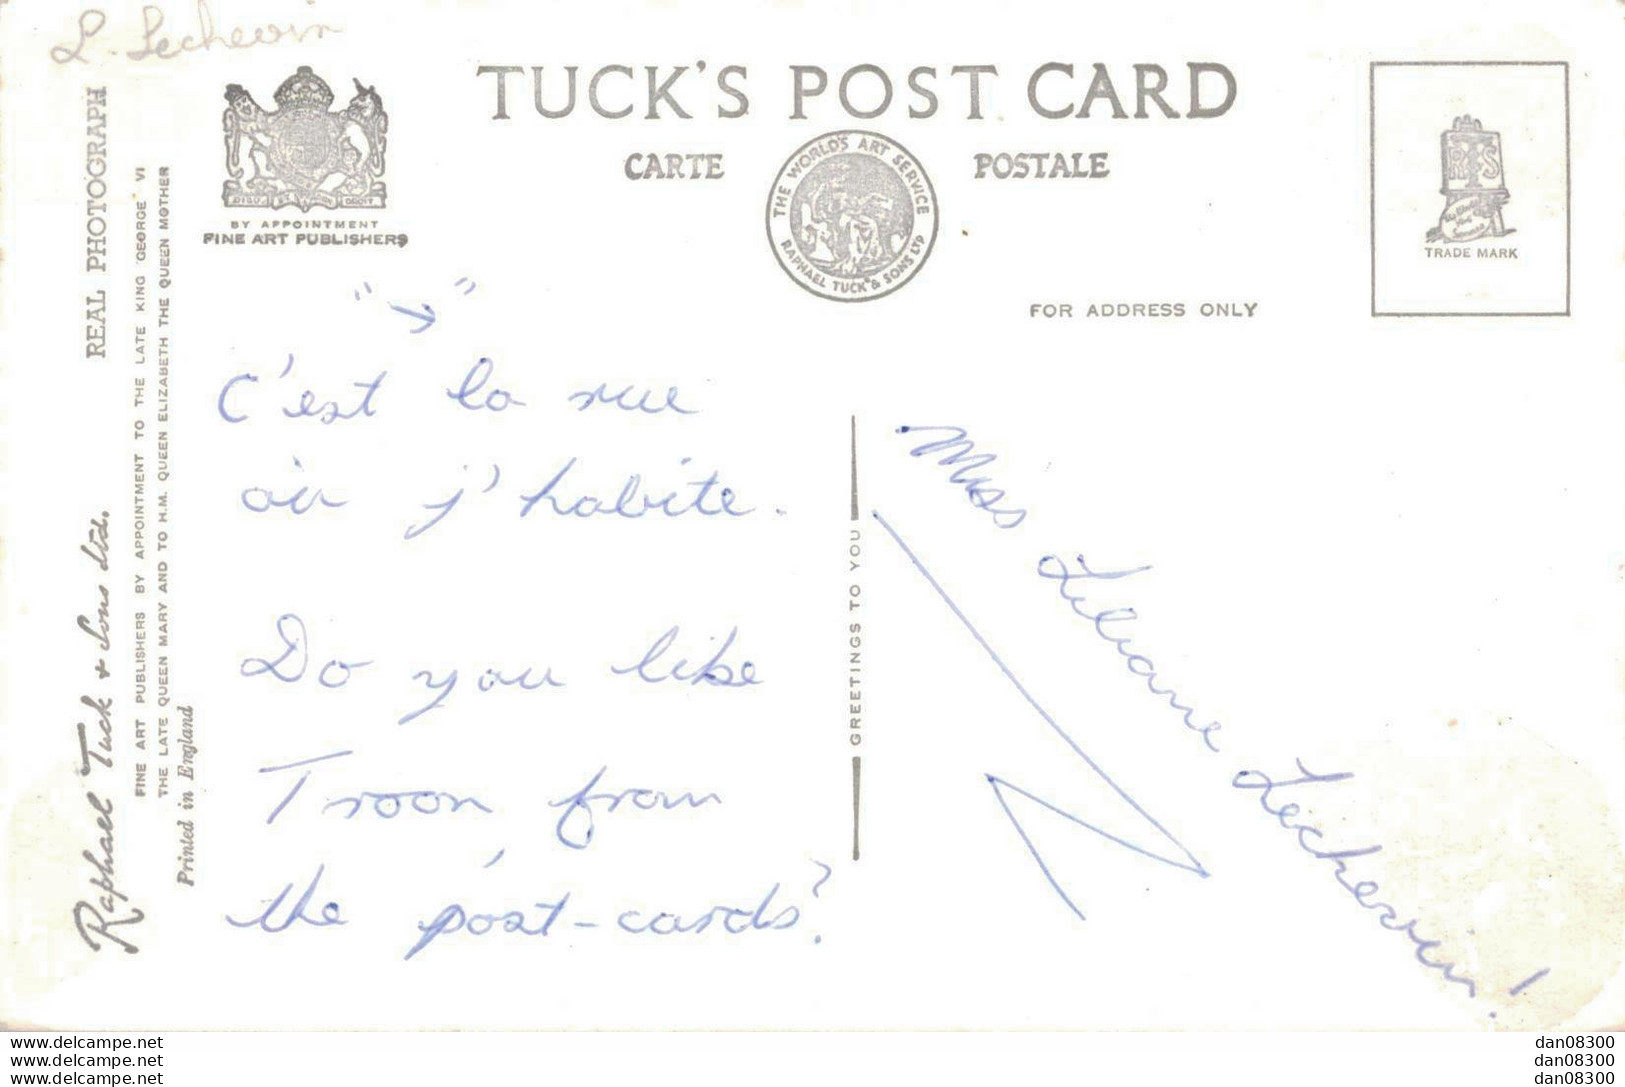 L. Lechevin
TUCK'S POST CARD
CARTE POSTALE
THE WORLD'S ART SERVICE
RAPHAEL TUCK & SONS LTD
BY APPOINTMENT
FINE ART PUBLISHERS
RTS
TRADE MARK
FOR ADDRESS ONLY
REAL PHOTOGRAPH
Raphael Tuck & Sons Ltd.
FINE ART PUBLISHERS BY APPOINTMENT TO THE LATE KING GEORGE VI
THE LATE QUEEN MARY AND TO H.M. QUEEN ELIZABETH THE QUEEN MOTHER
Printed in England
GREETINGS TO YOU
" → "
C'est la rue
où j'habite.
Do you like
Troon from
the post-cards?
Miss Liliane Lechevin!
www.delcampe.net
www.delcampe.net
www.delcampe.net
dan08300
dan08300
dan08300